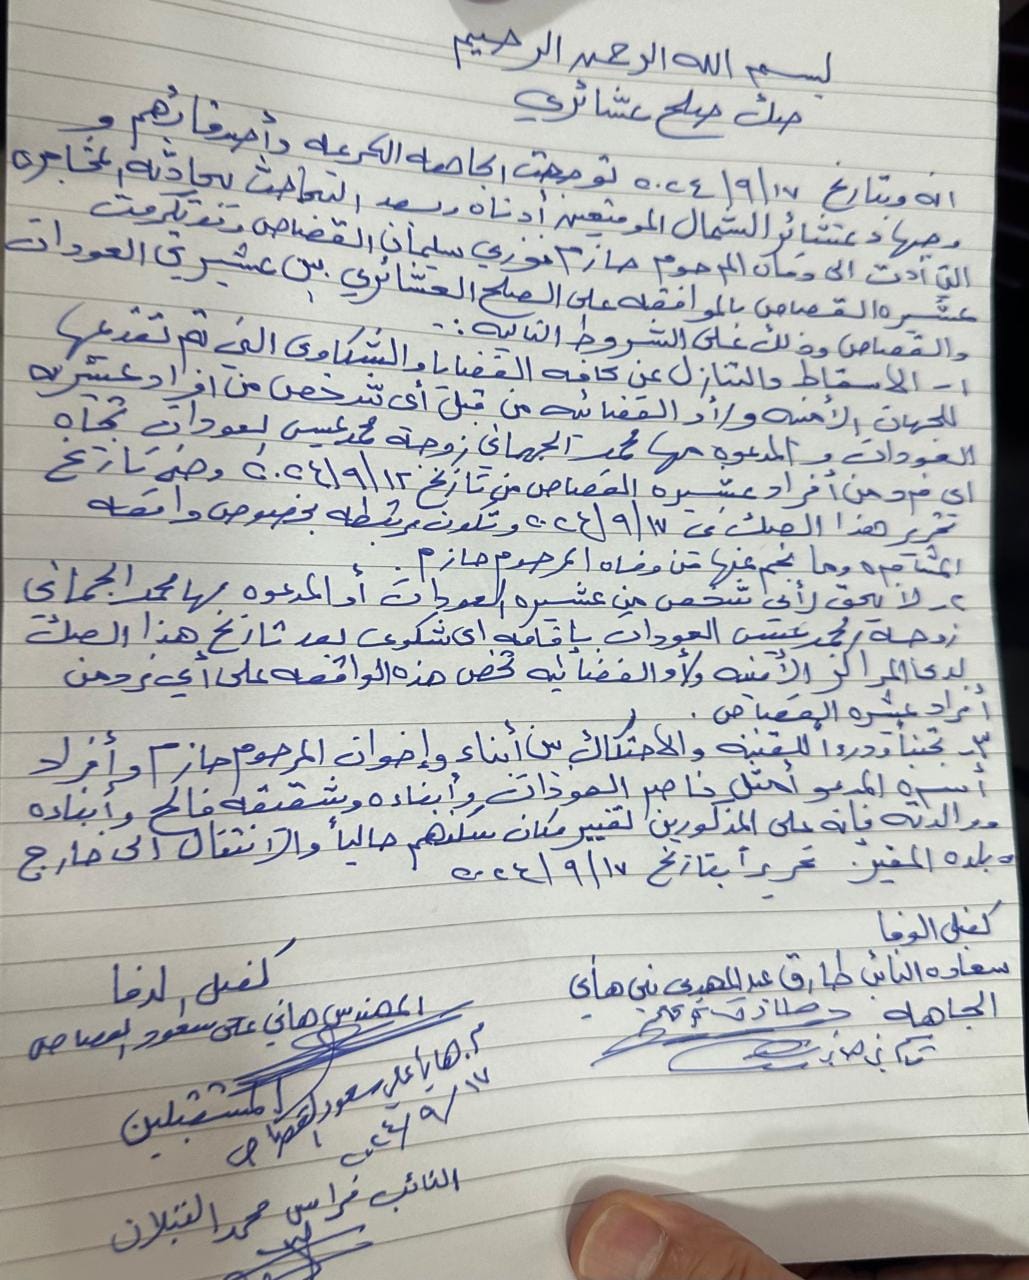 بسم الله الرحمن الرحيم
صك صلح عشائري
انه وبتاريخ ٢٠٢٤/٩/١٧ توجهت الجاهه الكريمه وأصدقائهم و
وجهاء عشائر الشمال الموقعين أدناه وبعد التباحث بحادثة المشاجره
التي أدت الى وفاة المرحوم حازم فوزي سليمان القصاص وتكرمت
عشيره القصاص بالموافقه على الصلح العشائري بين عشيرتي العودات
والقصاص وذلك على الشروط التاليه :-
١- الاسقاط والتنازل عن كافه القضايا والشكاوى التي تم تقديمها
للجهات الأمنيه و/أو القضائيه من قبل أي شخص من افراد عشيره
العودات والمدعوه مها محمد الجهماني زوجة محمد عيسى العودات تجاه
اي فرد من أفراد عشيره القصاص من تاريخ ٢٠٢٤/٩/١٢ وحتى تاريخ
تحرير هذا الصك في ٢٠٢٤/٩/١٧ وتكون مرتبطه بخصوص واقعه
المشاجره وما نجم عنها من وفاه المرحوم حازم .
٢- لا يحق لأي شخص من عشيره العودات أو المدعوه مها محمد الجهماني
زوجة محمد عيسى العودات بإقامه اي شكوى بعد تاريخ هذا الصك
لدى المراكز الأمنيه و/أو القضائيه تخص هذه الواقعه على أي فرد من
أفراد عشيره القصاص .
٣- تجنباً ودرءاً للفتنه والاحتكاك بين أبناء وإخوان المرحوم حازم وأفراد
أسره المدعو أمثل ناصر العودات وأبناءه وشقيقه فالح وأبناءه
ووالدته فإنه على المذكورين تغيير مكان سكنهم حالياً والانتقال الى خارج
بلده المغير . تحريراً بتاريخ ٢٠٢٤/٩/١٧
كفيل الوفا
سعاده النائب طارق عبدالمهدي بني هاني
الجاهه
كفيل الدفا
المهندس هاني علي سعود القصاص
المستقبلين
م. هاني علي سعود القصاص
٢٠٢٤/٩/١٧
النائب فراس محمد القبلان